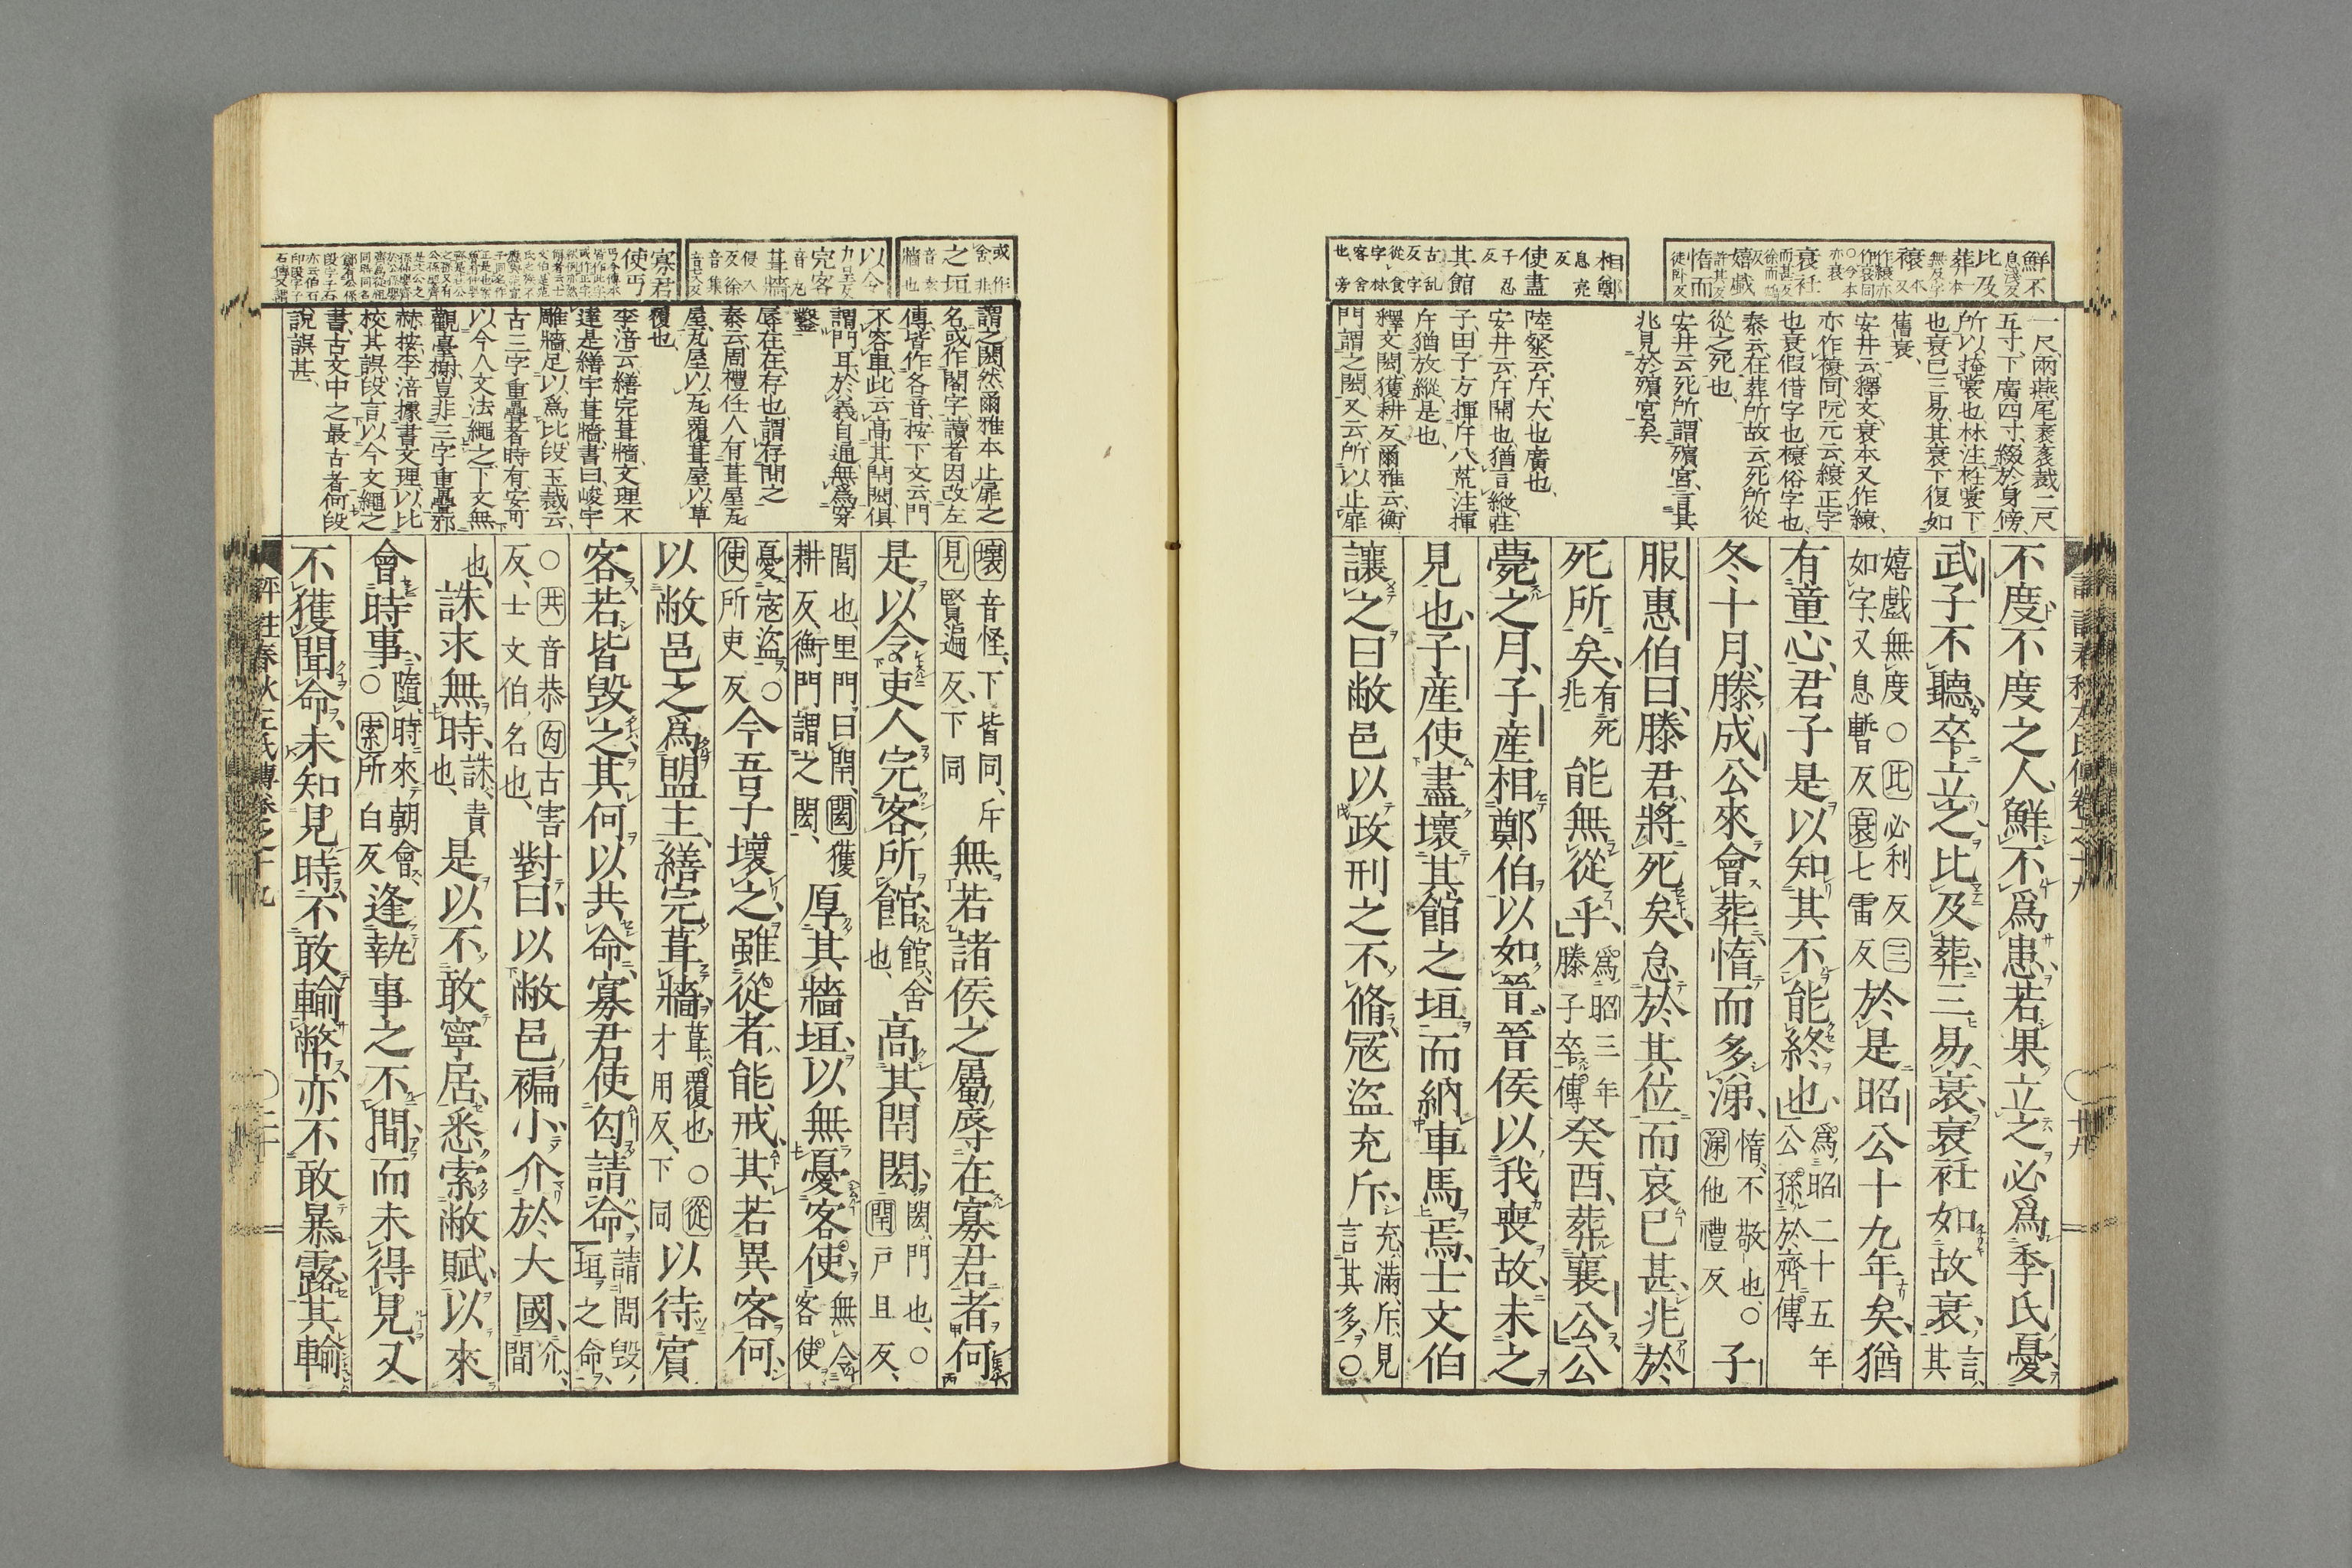 鮮不 息淺反
比及
葬一本無及字
衰衽
嬉戲 許其反
惰而 徒臥反
相鄭 息亮反
使盡 子忍反
其館 古乱反字從食字林客舍也旁
一尺兩燕尾裻裁二尺
五寸下廣四寸綴於身傍
所以掩裳也林注衽裳下
也衰已三易其衰下復如
舊衰
安井云釋文衰本又作縗
亦作䙑同阮元云縗正字
也衰假借字也䙑俗字也
秦云在葬所故云死所從
從之死也
安井云死所謂殯宮言其
兆見於殯宮矣
陸粲云斥大也廣也
安井云斥開也猶言縱莊
子田子方揮斥八荒注揮
斥猶放縱是也
釋文閎獲耕反爾雅云衡
門謂之閎又云所以止扉
不度不度之人鮮不爲患若果立之必爲季氏憂
武子不聽卒立之比及葬三易衰衰衽如故衰言其
嬉戲無度○比必利反三如字又息暫反衰七雷反於是昭公十九年矣猶
有童心君子是以知其不能終也爲昭二十五年公孫於齊傳
冬十月滕成公來會葬惰而多涕惰不敬也○涕他禮反子
服惠伯曰滕君將死矣怠於其位而哀已甚兆於
死所矣有死兆能無從乎爲昭三年滕子卒傳癸酉葬襄公公
薨之月子產相鄭伯以如晉晉侯以我喪故未之
見也子產使盡壞其館之垣而納車馬焉士文伯
讓之曰敝邑以政刑之不脩寇盜充斥充滿斥見言其多○
或作舍非
之垣 音袁牆也
以令 力呈反
完客 音丸
葺牆 侵入反徐音集
寡君
使丐
謂之閎然爾雅本止扉之
名或作閣字讀者因改左
傳皆作各音按下文云門
不容車此云高其閈閎俱
謂門耳於義自通無爲穿
鑿
辱在在存也謂存問之
秦云周禮任人有葺屋瓦
屋瓦屋以瓦覆葺屋以草
覆也
李涪云繕完葺牆文理不
達是繕宇葺牆書曰峻宇
雕牆足以爲比段玉裁云
古三字重疊者時有安可
以今人文法繩之下文無
觀臺榭豈非三字重疊邪
赫按李涪據書文理以比
校其誤段言以今文繩之
書古文中之最古者何段
說誤甚
壞音怪下皆同斥見賢遍反下同無若諸侯之屬辱在寡君者何
是以令吏人完客所館館舍也高其閈閎閎門也○閈戶旦反
閭也里門曰閈閎獲耕反衡門謂之閎厚其牆垣以無憂客使無令客使
憂寇盜○使所吏反今吾子壞之雖從者能戒其若異客何
以敝邑之爲盟主繕完葺牆葺覆也○從才用反下同以待賓
客若皆毀之其何以共命寡君使匄請命請問毀垣之命
○共音恭匄古害反士文伯名也對曰以敝邑褊小介於大國介間
也誅求無時誅責也是以不敢寧居悉索敝賦以來
會時事隨時來朝會○索所白反逢執事之不間而未得見又
不獲聞命未知見時不敢輸幣亦不敢暴露其輸
評註春秋左氏傳卷之十九